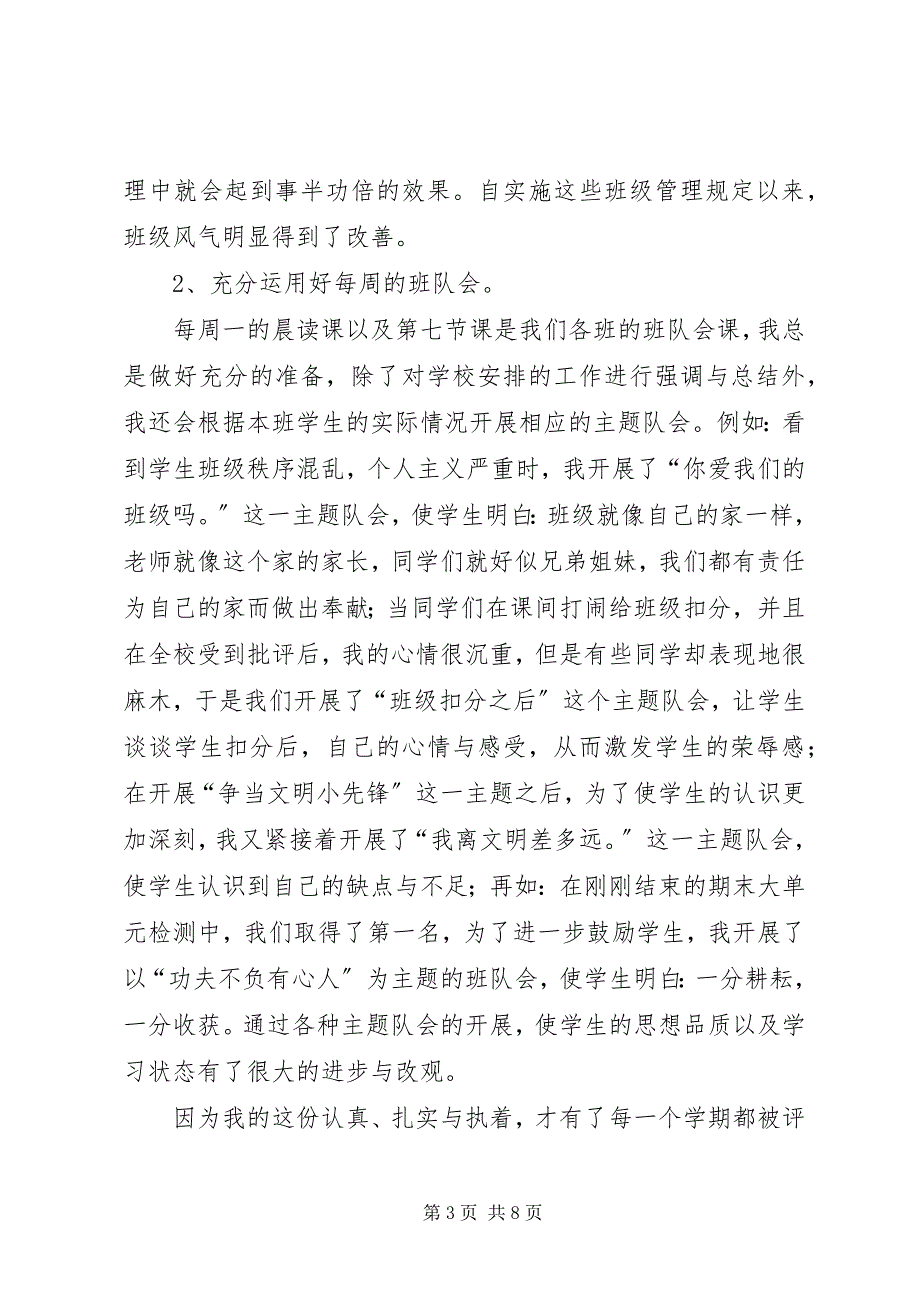 理中就会起到事半功倍的效果。自实施这些班级管理规定以来，
班级风气明显得到了改善。
2、充分运用好每周的班队会。
每周一的晨读课以及第七节课是我们各班的班队会课，我总
是做好充分的准备，除了对学校安排的工作进行强调与总结外，
我还会根据本班学生的实际情况开展相应的主题队会。例如：看
到学生班级秩序混乱，个人主义严重时，我开展了“你爱我们的
班级吗。〞这一主题队会，使学生明白：班级就像自己的家一样，
老师就像这个家的家长，同学们就好似兄弟姐妹，我们都有责任
为自己的家而做出奉献；当同学们在课间打闹给班级扣分，并且
在全校受到批评后，我的心情很沉重，但是有些同学却表现地很
麻木，于是我们开展了“班级扣分之后〞这个主题队会，让学生
谈谈学生扣分后，自己的心情与感受，从而激发学生的荣辱感；
在开展“争当文明小先锋〞这一主题之后，为了使学生的认识更
加深刻，我又紧接着开展了“我离文明差多远。〞这一主题队会，
使学生认识到自己的缺点与不足；再如：在刚刚结束的期末大单
元检测中，我们取得了第一名，为了进一步鼓励学生，我开展了
以“功夫不负有心人〞为主题的班队会，使学生明白：一分耕耘，
一分收获。通过各种主题队会的开展，使学生的思想品质以及学
习状态有了很大的进步与改观。
因为我的这份认真、扎实与执着，才有了每一个学期都被评
第 3 页 共 8 页